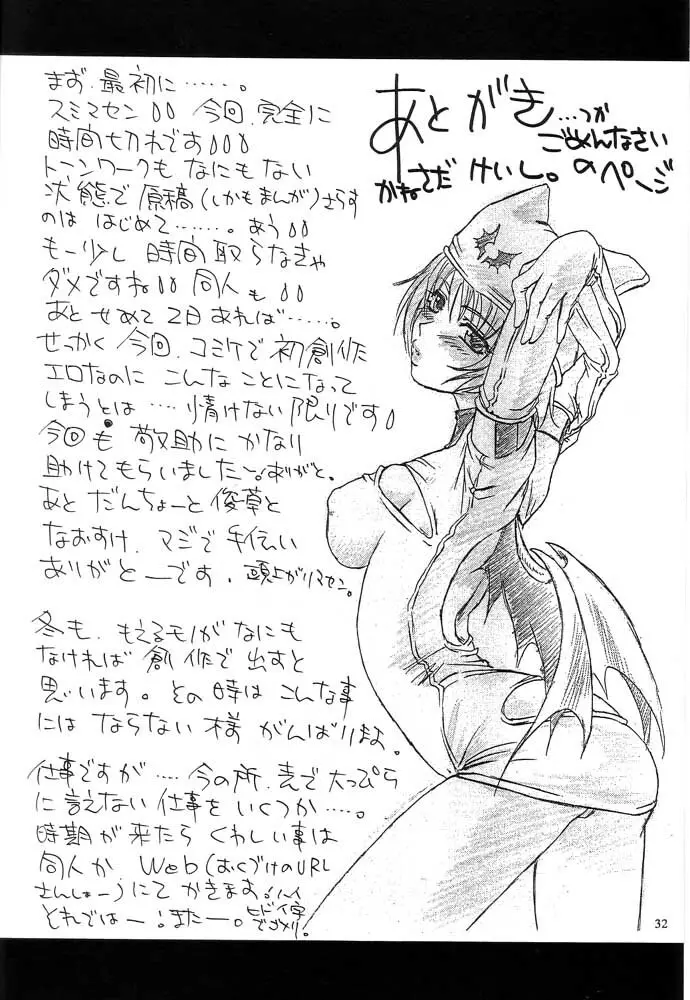 あとがき…つか
ごめんなさい
のページ
かねさだ けいし。
まず、最初に……。
スミマセン 今回、完全に
時間切れです
トーンワークもなにもない
状態で原稿(しかもまんが)さらす
のは はじめて……。あう
もー少し 時間 取らなきゃ
ダメですね 同人も
あと せめて 2日 あれば……。
せっかく 今回、コミケで 初創作
エロなのに こんなことになって
しまうとは… 情けない限りです
今回も 敬助に かなり
助けてもらいました〜。ありがと。
あと だんちょーと 俊草と
なおすけ、マジで 手伝い
ありがとーです、頭上がりマセン。
冬も、もえるモノが なにも
なければ 創作で 出すと
思います。その時は こんな事
には ならない 様 がんばりまよ。
仕事ですが…… 今の所、表で 大っぴら
に 言えない 仕事を いくつか……。
時期が来たら くわしい事は
同人か、Web(おくづけのURL
さんしょー)にて かきます!ハイ
それでは〜!また〜。ヒドイ字
でゴメリ!
32